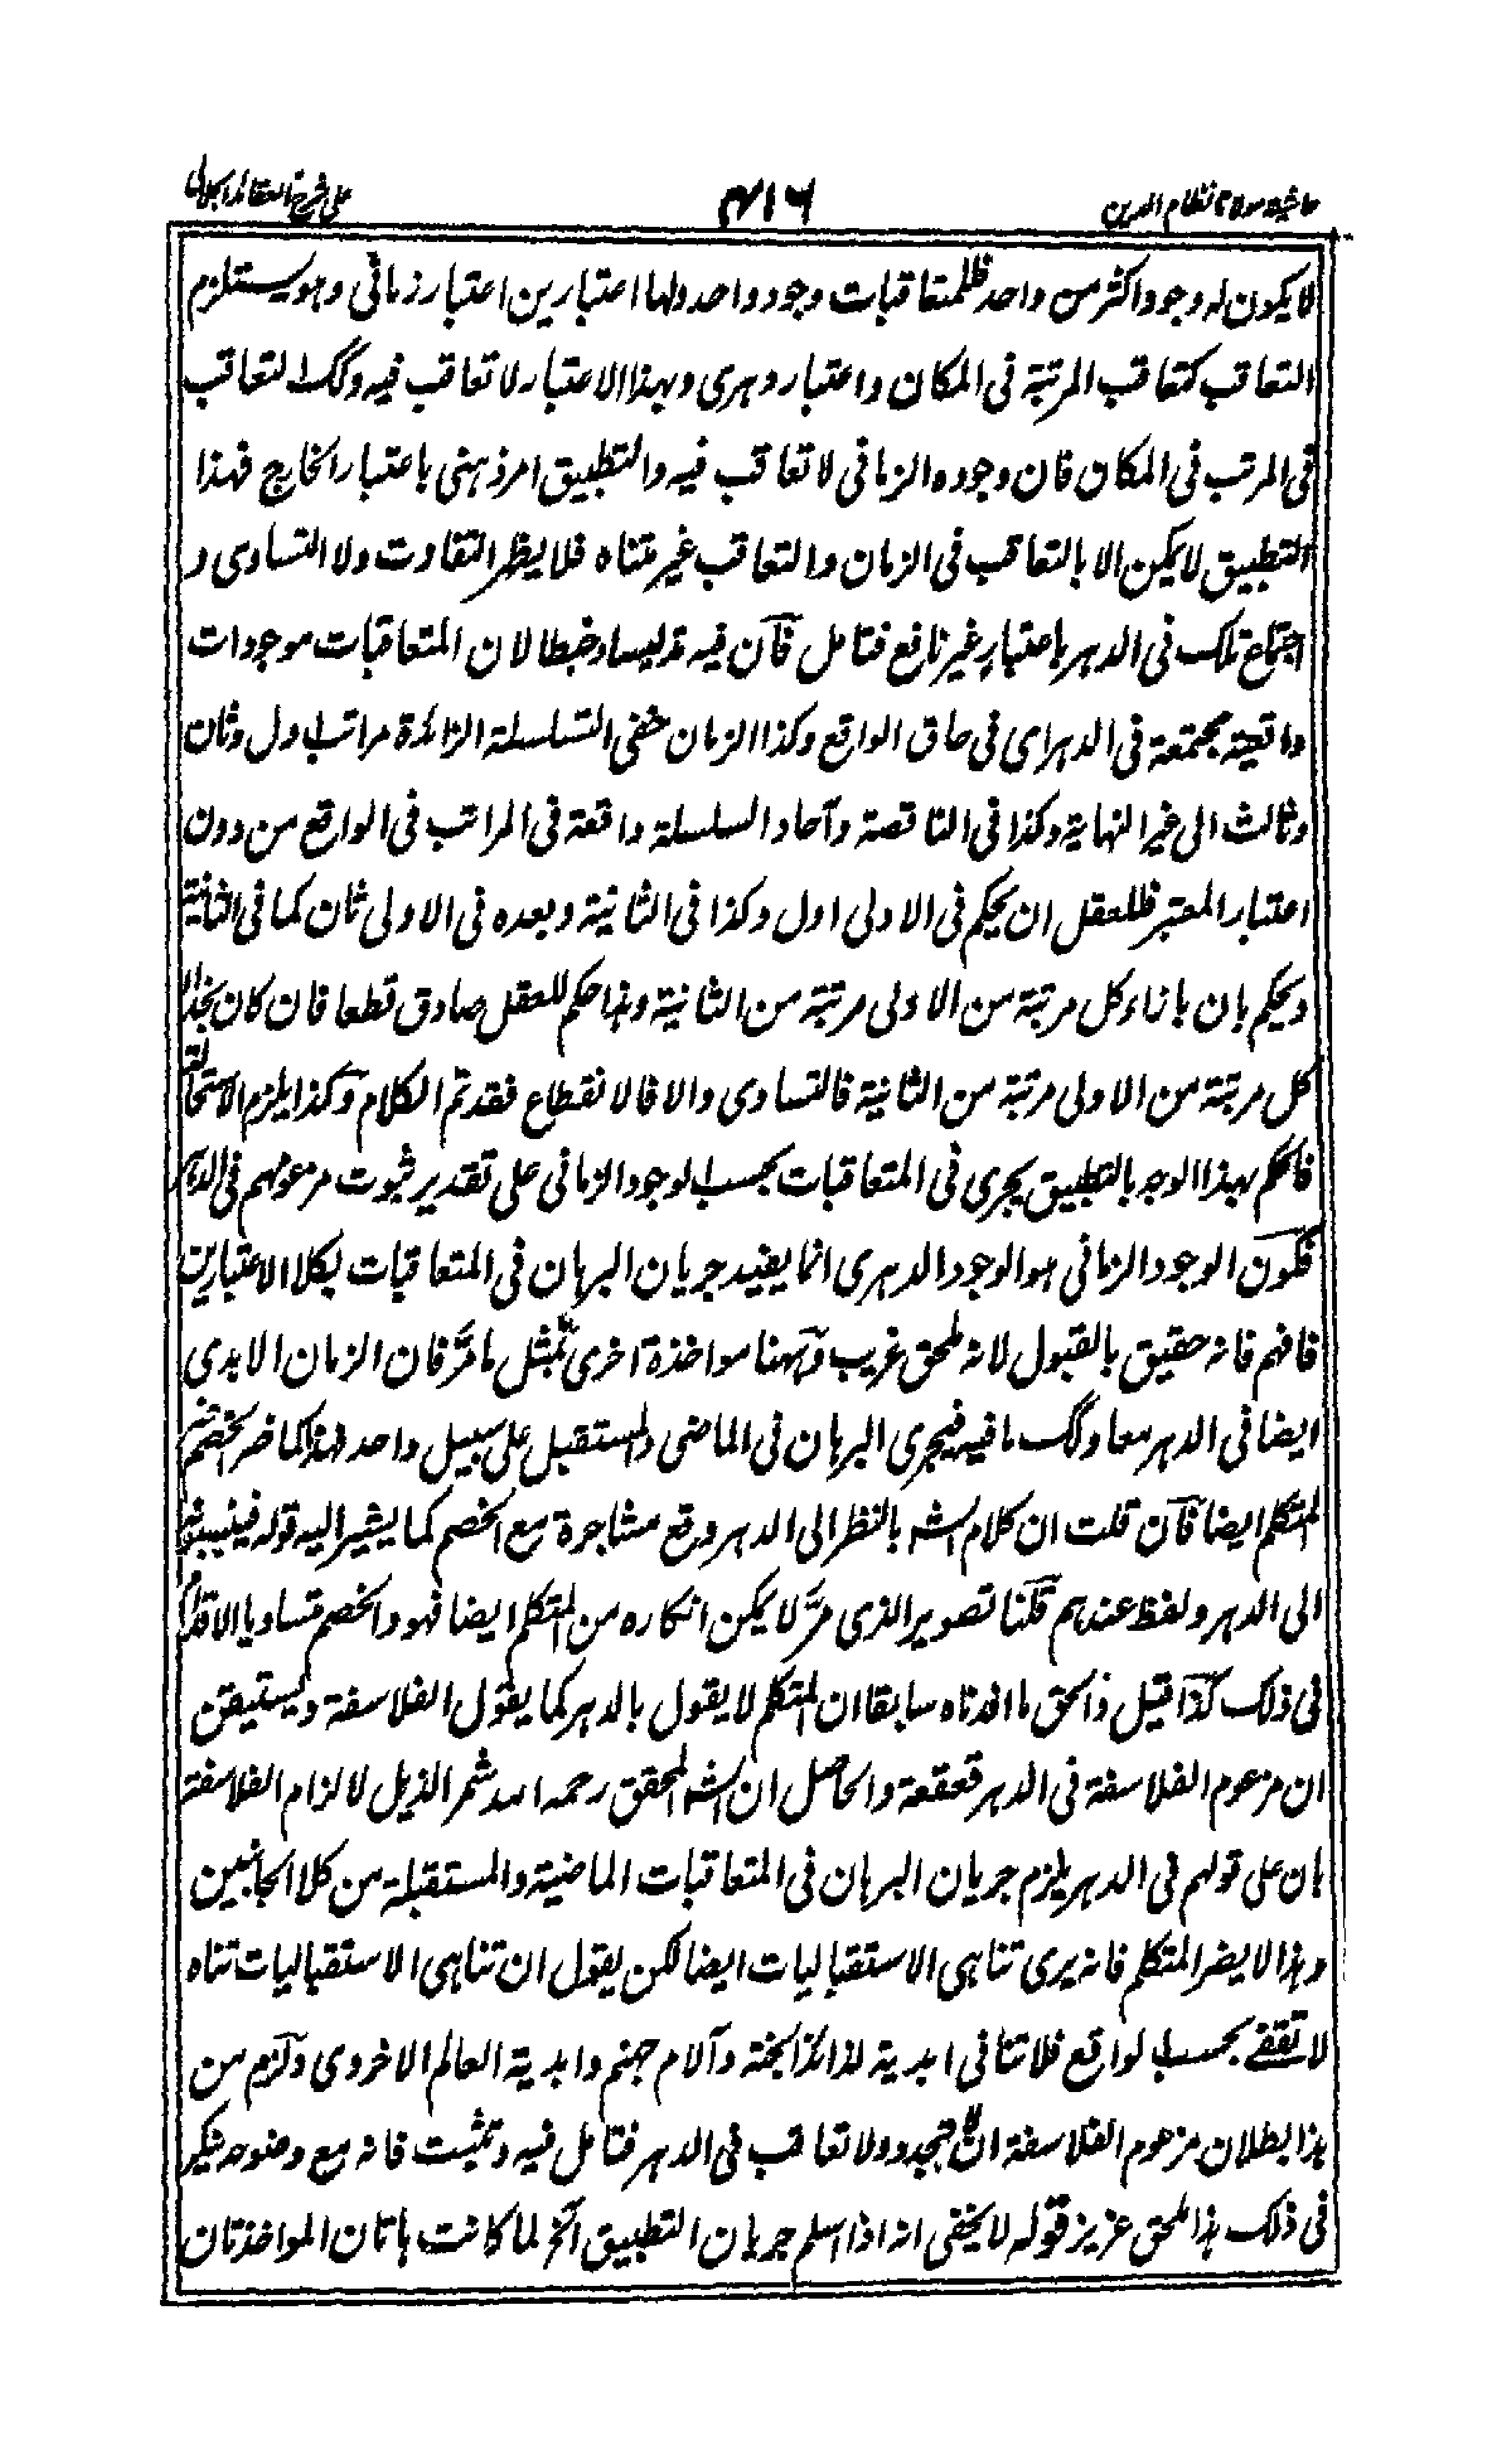 حاشيه مولانا نظام الدين
٤١٦
على شرح العقائد الجلالى
لا يكون له وجود اكثر من واحد فللمتعاقبات وجود واحد ولها اعتبارين اعتبار زمانى وهو يستلزم
التعاقب كتعاقب المرتبة فى المكان واعتبار دهرى وبهذا الاعتبار لا تعاقب فيه وكك التعاقب
فى المرتب فى المكان فان وجوده الزمانى لا تعاقب فيه والتطبيق امر ذهنى باعتبار الخارج فهذا
التطبيق لا يمكن الا بالتعاقب فى الزمان والتعاقب غير متناه فلا يظهر التفاوت ولا التساوى و
اجتماع تلك فى الدهر باعتبار غير نافع فتامل فان فيه تدليسا وخبطا لان المتعاقبات موجودات
واقعية مجتمعة فى الدهر اى فى حاق الواقع وكذا الزمان ففى السلسلة الزائدة مراتب اول وثان
وثالث الى غير النهاية وكذا فى الناقصة وآحاد السلسلة واقعة فى المراتب فى الواقع من دون
اعتبار المعتبر فللعقل ان يحكم فى الاولى اول وكذا فى الثانية وبعده فى الاولى ثان كما فى الثانية
ويحكم بان بازاء كل مرتبة من الاولى مرتبة من الثانية وهذا حكم للعقل صادق قطعا فان كان بحذاء
كل مرتبة من الاولى مرتبة من الثانية فالتساوى والا فالانقطاع فقد تم الكلام وكذا يلزم الاستحالة
فالحكم بهذا الوجه بالتطبيق يجرى فى المتعاقبات بحسب الوجود الزمانى على تقدير ثبوت مزعومهم فى الدهر
فكون الوجود الزمانى هو الوجود الدهرى انما يفيد جريان البرهان فى المتعاقبات بكلا الاعتبارين
فافهم فانه حقيق بالقبول لانه ملحق غريب وههنا مواخذة اخرى بمثل ما مر فان الزمان الابدى
ايضا فى الدهر معا وكك ما فيه فيجرى البرهان فى الماضى والمستقبل على سبيل واحد فهذا كما ضر الخصم ضر
المتكلم ايضا فان قلت ان كلام الشـ بالنظر الى الدهر وقع مشاجرة مع الخصم كما يشير اليه قوله
الى الدهر ولفظ عندهم قلنا تصوير الذى مر لا يمكن انكاره من المتكلم ايضا فهو والخصم متساويا الاقدام
فى ذلك كذا قيل والحق ما افدناه سابقا ان المتكلم لا يقول بالدهر كما يقول الفلاسفة ويستيقن
ان مزعوم الفلاسفة فى الدهر قعقعة والحاصل ان الشـ المحقق رحمه الله شمر الذيل لالزام الفلاسفة
بان على قولهم فى الدهر يلزم جريان البرهان فى المتعاقبات الماضية والمستقبلة من كلا الجانبين
وهذا لا يضر المتكلم فانه يرى تناهى الاستقباليات ايضا لكن يقول ان تناهى الاستقباليات تناه
لا تقفى بحسب الواقع فلا تنافى ابدية لذائذ الجنة وآلام جهنم وابدية العالم الاخروى ولزم من
هذا بطلان مزعوم الفلاسفة ان لا تجدد ولا تعاقب فى الدهر فتامل فيه وتثبت فانه مع وضوحه ينكر
فى ذلك هذا ملحق عزيز قوله لا يخفى انه اذا سلم جريان التطبيق آلخ لما كانت هاتان المواخذتان